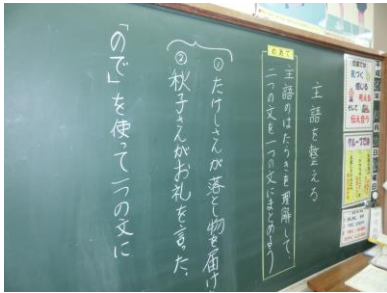 主語を整える
めあて
主語のはたらきを理解して、
二つの文を一つの文にまとめよう
①たけしさんが落とし物を届け
②秋子さんがお礼を言った。
「ので」を使って一つの文に
気づく
感じる
考える
そして
伝え合う